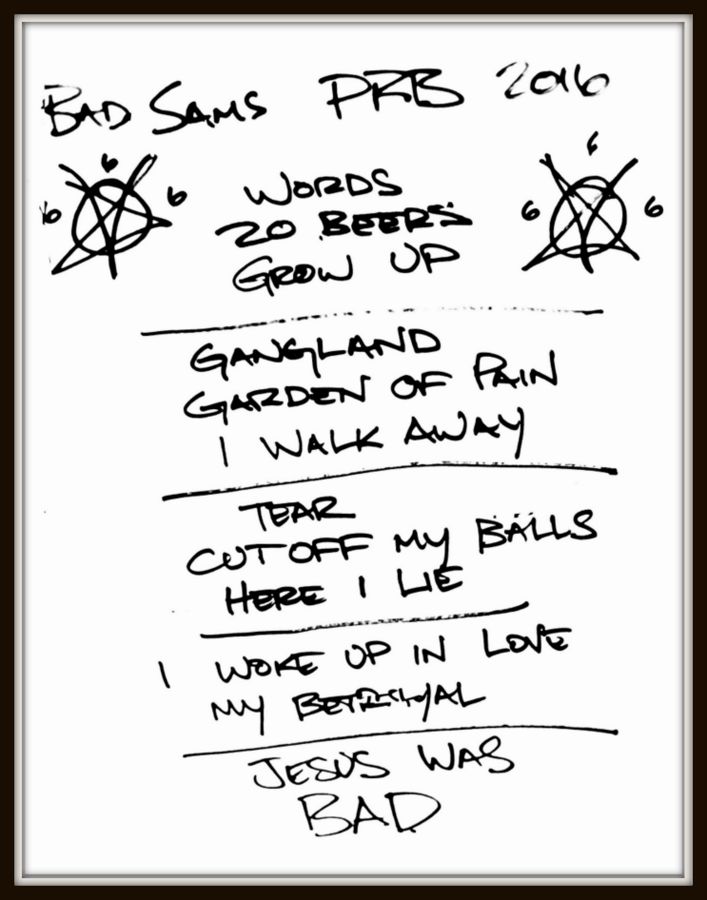 BAD SAMS PRB 2016
6 6
6 6 6 6
WORDS
20 BEERS
GROW UP
GANGLAND
GARDEN OF PAIN
I WALK AWAY
TEAR
CUT OFF MY BALLS
HERE I LIE
I WOKE UP IN LOVE
MY BETRAYAL
JESUS WAS
BAD